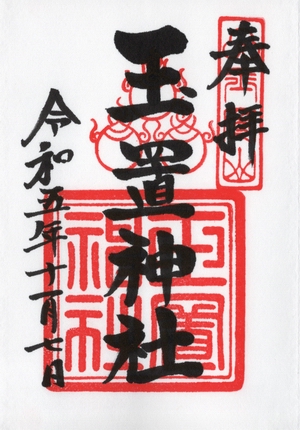 奉拝
玉置神社
令和五年十一月七日
玉置
神社